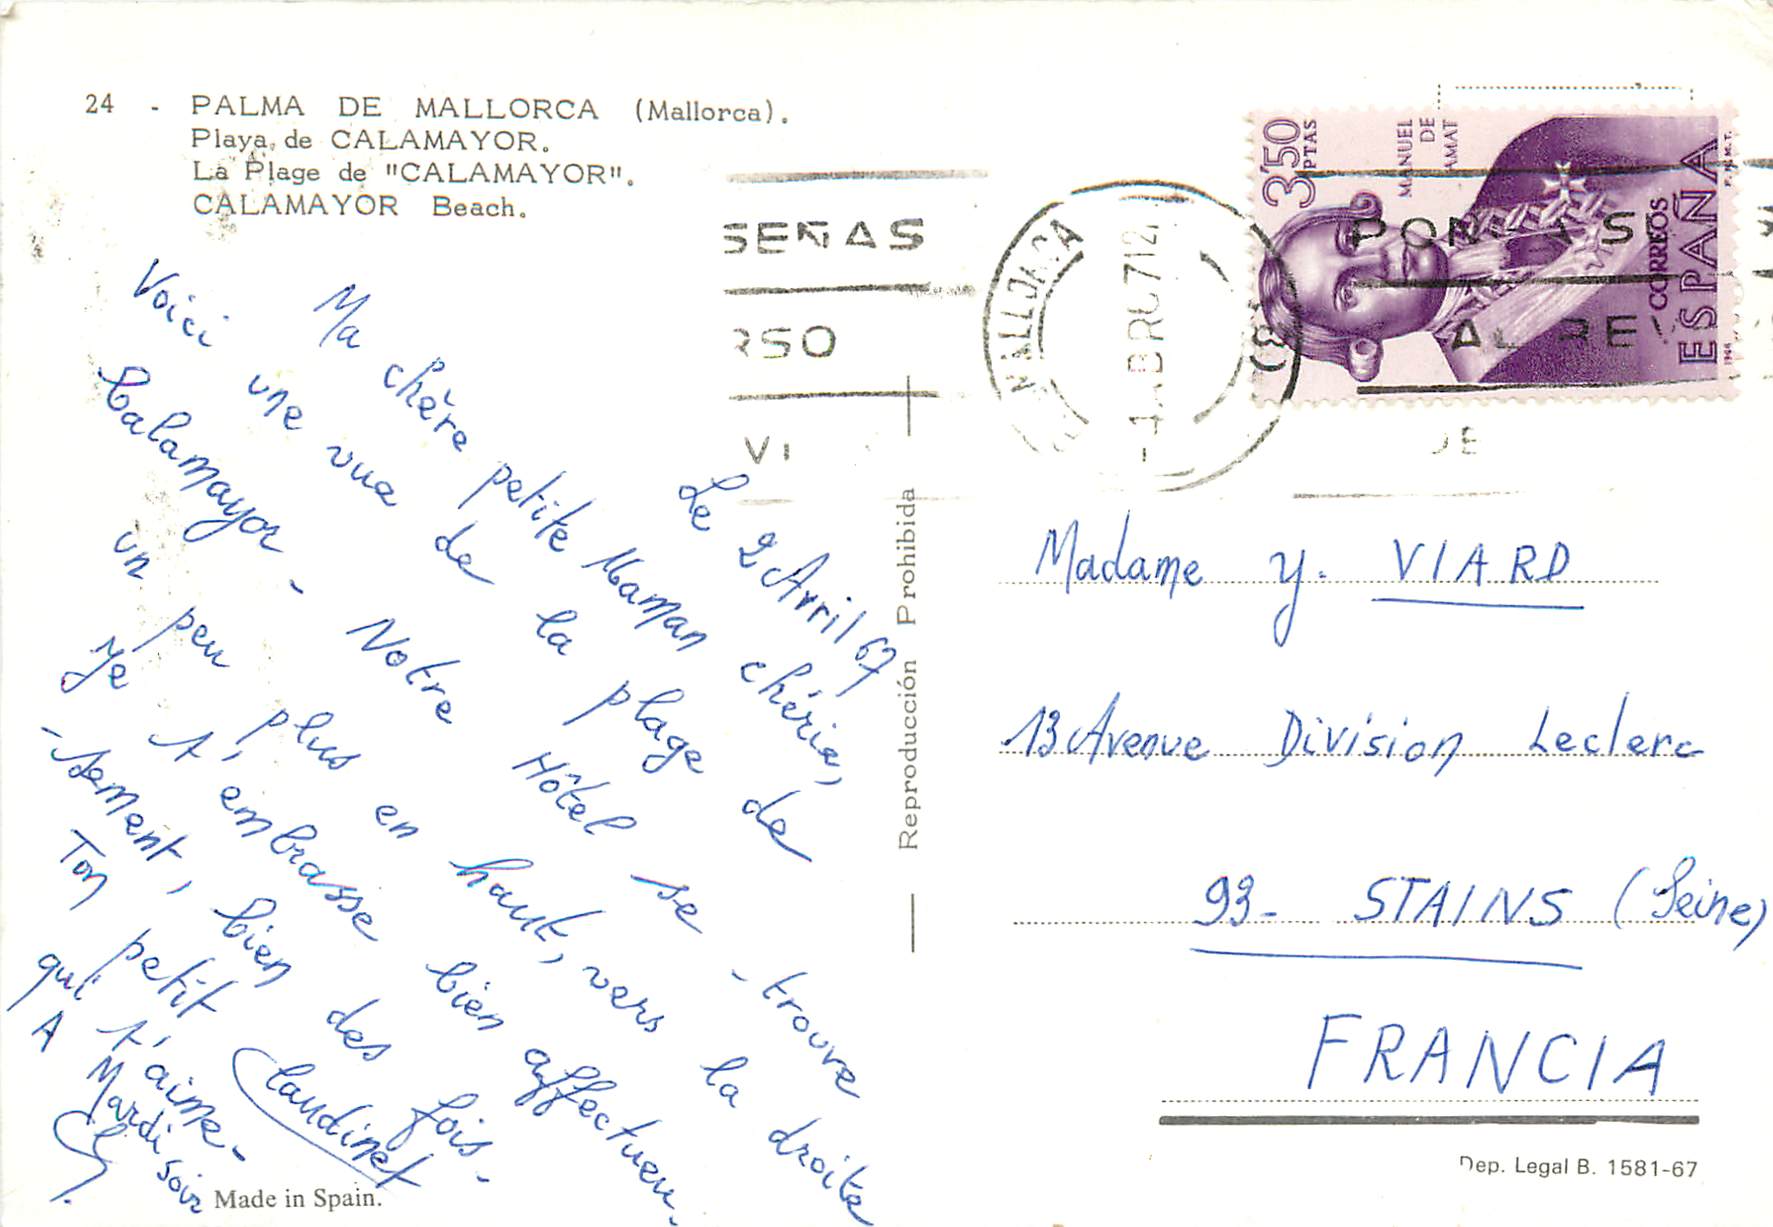 24 - PALMA DE MALLORCA (Mallorca).
Playa de CALAMAYOR.
La Plage de "CALAMAYOR".
CALAMAYOR Beach.
Le 2 Avril 67
Ma chère petite Maman chérie,
Voici une vue de la plage de
Calamayor - Notre Hôtel se trouve
un peu plus en haut, vers la droite
Je t'embrasse bien affectueu-
-sement, bien des fois -
Ton petit Claudinet
qui t'aime -
A Mardi soir
Reproducción Prohibida
Made in Spain.
SEÑAS
RSO
VI
MALLORCA
PONGA SE
AL REV
DE
3'50 PTAS
MANUEL
DE
AMAT
CORREOS
ESPAÑA
F.N.M.T.
1966
Madame Y. VIARD
13 Avenue Division Leclerc
93 - STAINS (Seine)
FRANCIA
Dep. Legal B. 1581-67